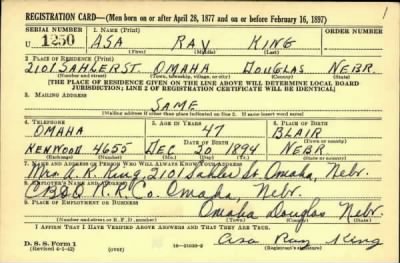 REGISTRATION CARD—(Men born on or after April 28, 1877 and on or before February 16, 1897)
SERIAL NUMBER 1. NAME (Print)
U 1250 ASA RAY KING
(First) (Middle) (Last)
2. PLACE OF RESIDENCE (Print)
2101 SAHLER ST OMAHA DOUGLAS NEBR.
(Number and street) (Town, township, village, or city) (County) (State)
[THE PLACE OF RESIDENCE GIVEN ON THE LINE ABOVE WILL DETERMINE LOCAL BOARD
JURISDICTION; LINE 2 OF REGISTRATION CERTIFICATE WILL BE IDENTICAL]
3. MAILING ADDRESS
SAME
[Mailing address if other than place indicated on line 2. If same insert word same]
4. TELEPHONE 5. AGE IN YEARS 6. PLACE OF BIRTH
OMAHA 47 BLAIR
DATE OF BIRTH (Town or county)
KENWOOD 4655 DEC 20 1894 NEBR
(Exchange) (Number) (Mo.) (Day) (Yr.) (State or country)
7. NAME AND ADDRESS OF PERSON WHO WILL ALWAYS KNOW YOUR ADDRESS
Mrs. A. R. King, 2101 Sahler St. Omaha, Nebr.
8. EMPLOYER'S NAME AND ADDRESS
CB&Q R.R. Co. Omaha, Nebr.
9. PLACE OF EMPLOYMENT OR BUSINESS
Omaha Douglas Nebr.
(Number and street or R. F. D. number) (Town) (County) (State)
I AFFIRM THAT I HAVE VERIFIED ABOVE ANSWERS AND THAT THEY ARE TRUE.
D. S. S. Form 1
(Revised 4-1-42) (over) Asa Ray King
(Registrant's signature)